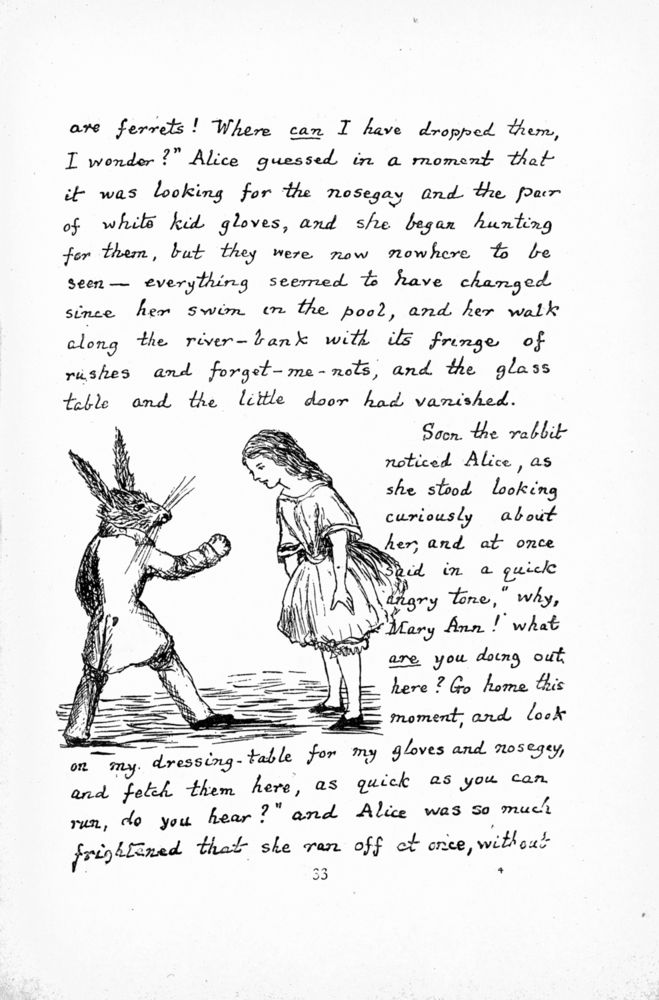 are ferrets! Where can I have dropped them,
I wonder?" Alice guessed in a moment that
it was looking for the nosegay and the pair
of white kid gloves, and she began hunting
for them, but they were now nowhere to be
seen — everything seemed to have changed
since her swim in the pool, and her walk
along the river-bank with its fringe of
rushes and forget-me-nots, and the glass
table and the little door had vanished.
Soon the rabbit
noticed Alice, as
she stood looking
curiously about
her, and at once
said in a quick
angry tone, "why,
Mary Ann! what
are you doing out
here? Go home this
moment, and look
on my dressing-table for my gloves and nosegay,
and fetch them here, as quick as you can
run, do you hear?" and Alice was so much
frightened that she ran off at once, without
33
4